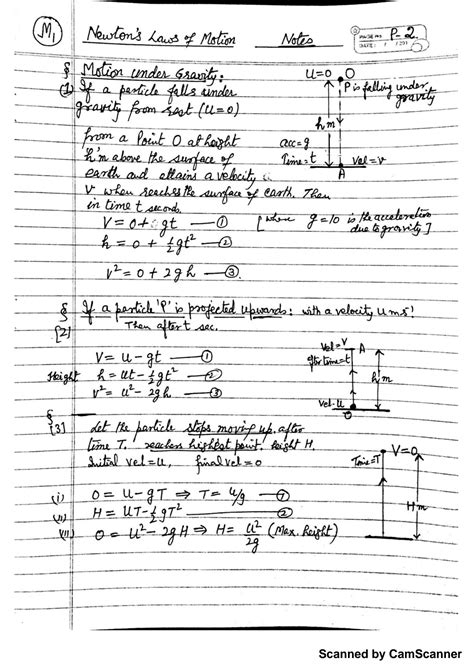 M₁
Newton's Laws of Motion Notes
P-2
DATE:
§ Motion under Gravity:
(1) If a particle falls under
gravity from rest (u=0)
from a Point O at height
h'm above the surface of
earth and attains a velocity
V when reaches the surface of earth. Then
in time t seconds.
u=0 O
P is falling under
gravity
h m
acc=g
Time=t
Vel=v
A
V = 0+gt —①
h = 0 + ½gt² —②
v² = 0 + 2gh —③
[where g=10 is the acceleration
due to gravity]
§ If a particle 'P' is projected upwards: with a velocity u ms⁻¹
[2] Then after t sec.
V = u - gt —①
Height h = ut - ½gt² —②
v² = u² - 2gh —③
Vel=V A
after time=t
h m
Vel-u
O
§
[3] Let the particle stops moving up, after
time T, reaches highest point, height H,
Initial vel=u, final vel=0
(i) 0 = u-gT ⇒ T = u/g —①
(ii) H = UT-½gT² —②
(iii) 0 = u²-2gH ⇒ H= u²/2g (Max. height)
V=0
Time=T
H m
Scanned by CamScanner